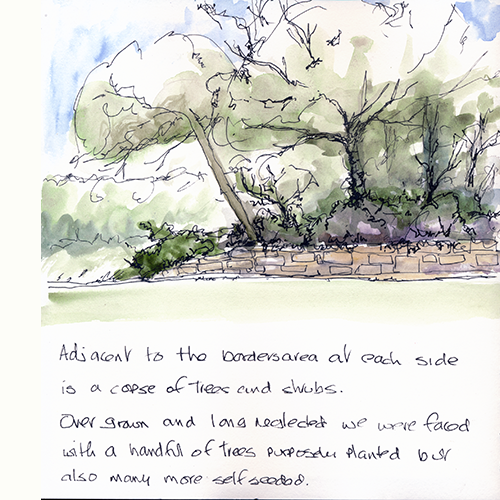 Adjacent to the borders area at each side
is a copse of trees and shrubs.
Over grown and long neglected we were faced
with a handful of trees purposely planted but
also many more self seeded.